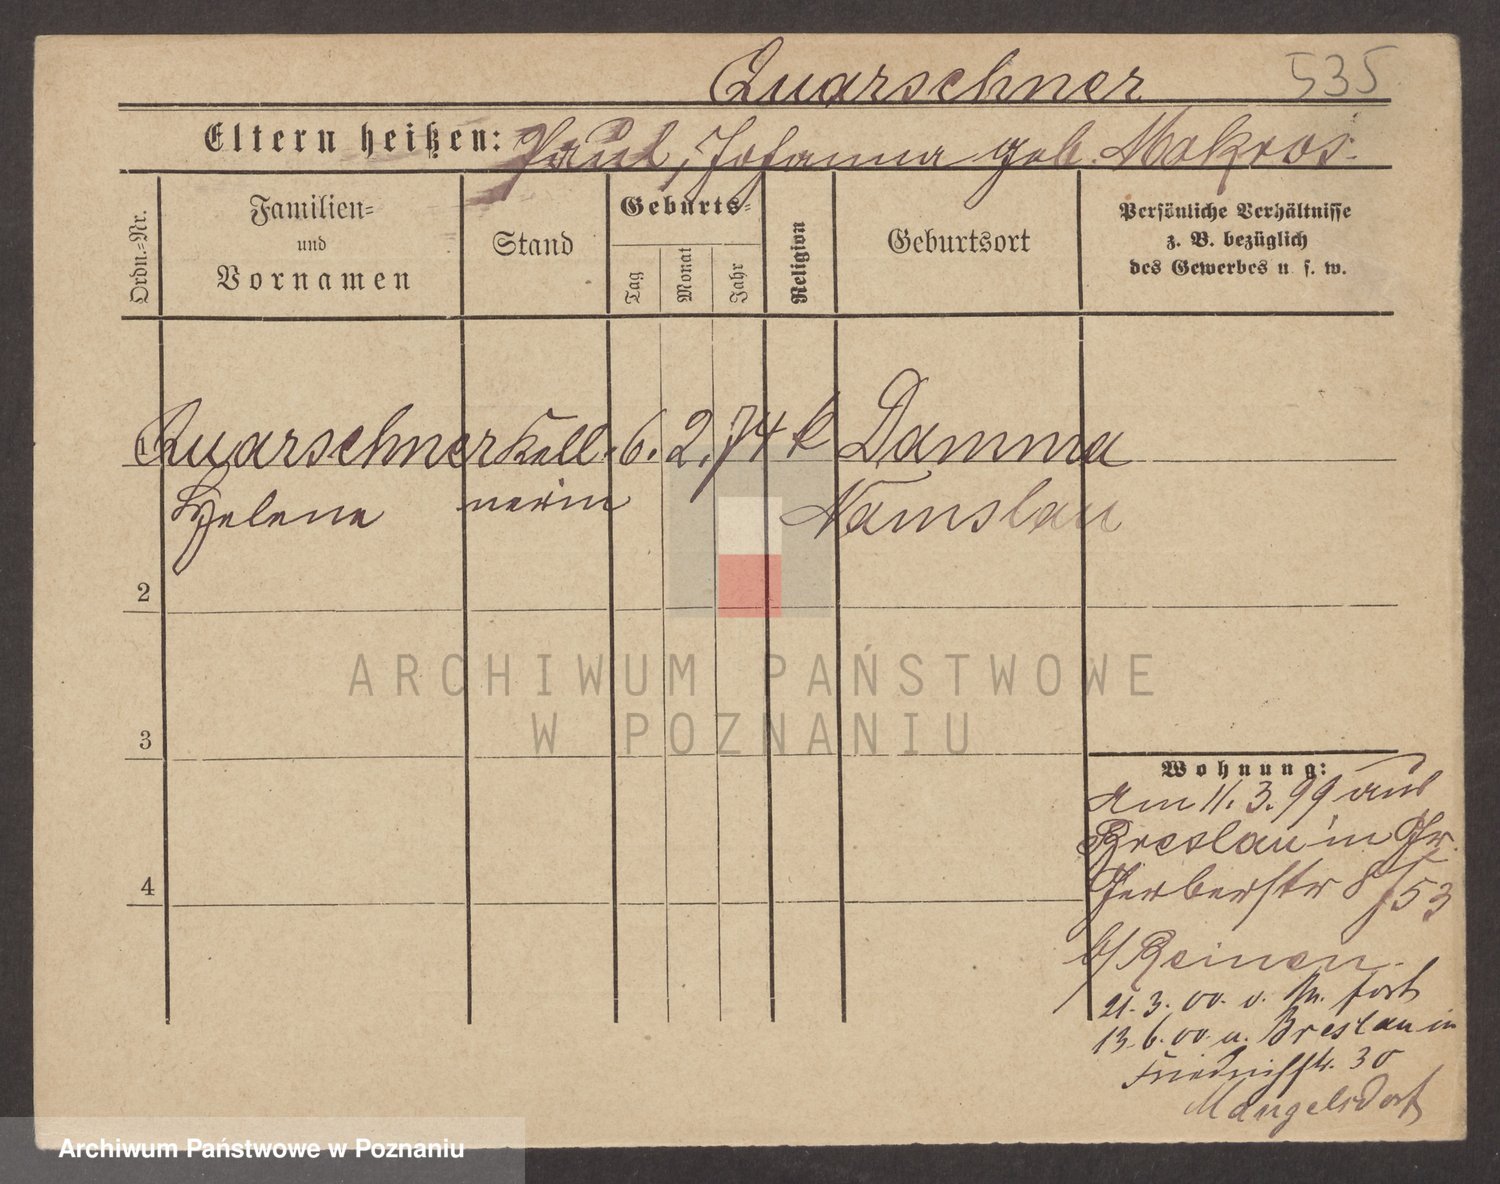 Quarschner 535
Eltern heißen: Paul, Johanna geb. Mokros.
Ordn.=Nr.
Familien=
und
Vornamen
Stand
Geburts=
Tag
Monat
Jahr
Religion
Geburtsort
Persönliche Verhältnisse
z. B. bezüglich
des Gewerbes u. s. w.
Quarschner Kell= 6. 2. 74 k Damma
Helene nerin Namslau
2
3
4
Wohnung:
Am 11. 3. 99 aus
Breslau in Gr.
Gerberstr 8/53
b/ Reinen.
21. 3. 00. v. fort
13. 6. 00. a. Breslau in
Friedrichstr. 30
Mangelsdorf
ARCHIWUM PAŃSTWOWE
W POZNANIU
Archiwum Państwowe w Poznaniu